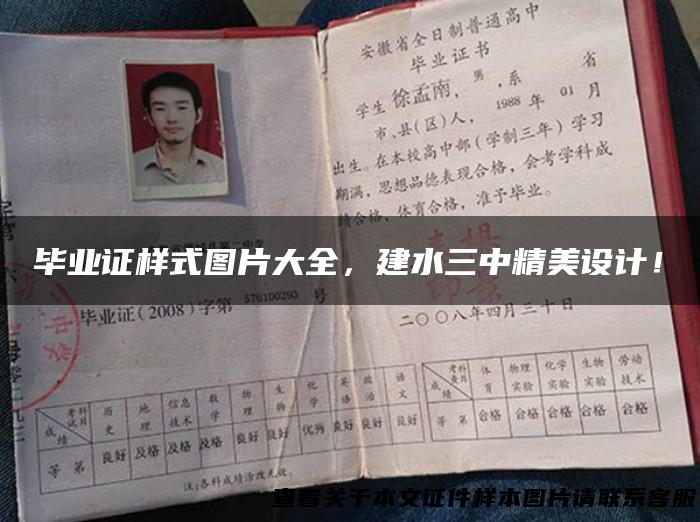 安徽省全日制普通高中
毕业证书
学生徐孟南，男，系 省
市、县(区)人，1988年01月
出生。在本校高中部（学制三年）学习
期满，思想品德表现合格，会考学科成
绩合格，体育合格，准予毕业。
毕业证样式图片大全，建水三中精美设计！
毕业证(2008)字第576100293号
二〇〇八年四月三十日
考试科目 历史 地理 信息技术 数学 物理 生物 化学 英语 政治 语文
成绩
等第 良好 及格 及格 及格 良好 良好 优秀 良好 良好 良好
注:各科成绩涂改无效。
考查科目 体育 物理实验 化学实验 生物实验 劳动技术
成绩
等第 合格 合格 合格 合格 合格
查看关于本文证件样本图片请联系客服